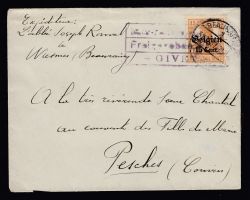 Expéditeur:
Joseph
à
Wasmes (Beauraing)
Freigegeben
GIVET
Belgien
15 Cent.
A la très révérende Sœur Chantal
au couvent des Filles de Marie
Pesches
(Couvin)